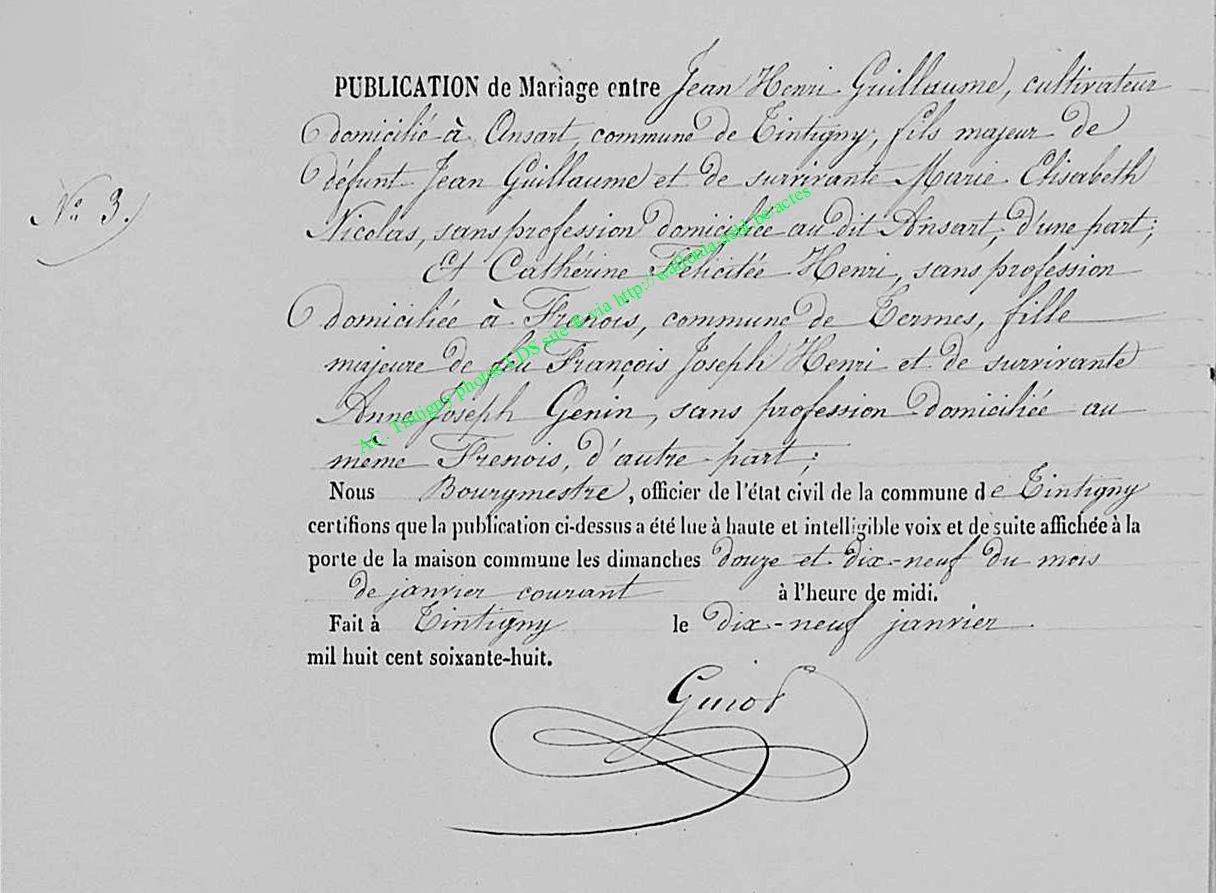 PUBLICATION de Mariage entre Jean Henri Guillaume, cultivateur
domicilié à Ansart, commune de Tintigny, fils majeur de
défunt Jean Guillaume et de survivante Marie Elisabeth
N° 3.
Nicolas, sans profession domiciliée au dit Ansart, d'une part;
Et Cathérine Félicitée Henri, sans profession
domiciliée à Frenois, commune de Termes, fille
majeure de feu François Joseph Henri et de survivante
Anne Joseph Genin, sans profession domiciliée au
même Frenois, d'autre part;
Nous Bourgmestre, officier de l'état civil de la commune de Tintigny
certifions que la publication ci-dessus a été lue à haute et intelligible voix et de suite affichée à la
porte de la maison commune les dimanches douze et dix-neuf du mois
de janvier courant à l'heure de midi.
Fait à Tintigny le dix-neuf janvier
mil huit cent soixante-huit.
Guiot
AC. Tintigny photos LDS site ® via http://wallonia.asbl.be/actes